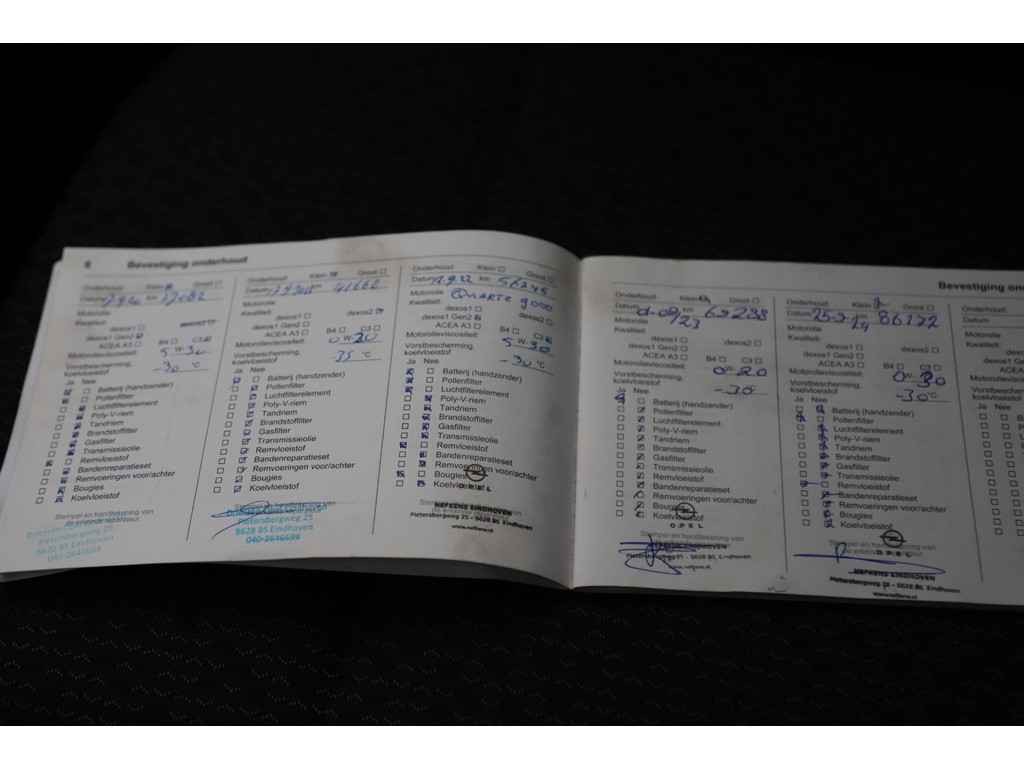 8 Bevestiging onderhoud
Onderhoud Klein Groot
Datum km 17082
Motorolie
Kwaliteit
dexos1
dexos1 Gen2
ACEA A3 B4 C3
Motorolieviscositeit 5 W 30
Vorstbescherming, koelvloeistof -30 °C
Ja Nee
Batterij (handzender)
Pollenfilter
Luchtfilterelement
Poly-V-riem
Tandriem
Brandstoffilter
Gasfilter
Transmissieolie
Remvloeistof
Bandenreparatieset
Remvoeringen voor/achter
Bougies
Koelvloeistof
Stempel en handtekening van
Pietersbergweg 25
5628 BS Eindhoven
040-2646688
Onderhoud Klein Groot
Datum km 41660
Motorolie
Kwaliteit dexos2
dexos1
dexos1 Gen2
ACEA A3 B4 C3
Motorolieviscositeit 0 W 20
Vorstbescherming,
koelvloeistof 35 °C
Ja Nee
Batterij (handzender)
Pollenfilter
Luchtfilterelement
Poly-V-riem
Tandriem
Brandstoffilter
Gasfilter
Transmissieolie
Remvloeistof
Bandenreparatieset
Remvoeringen voor/achter
Bougies
Koelvloeistof
Pietersbergweg 25
5628 BS Eindhoven
040-2646688
Onderhoud Klein Groot
Datum 1.9.22 km
Motorolie Quartz 9000
Kwaliteit
dexos1 dexos2
dexos1 Gen2
ACEA A3 B4 C3
Motorolieviscositeit 5 W 30
Vorstbescherming,
koelvloeistof -30 °C
Ja Nee
Batterij (handzender)
Pollenfilter
Luchtfilterelement
Poly-V-riem
Tandriem
Brandstoffilter
Gasfilter
Transmissieolie
Remvloeistof
Bandenreparatieset
Remvoeringen voor/achter
Bougies
Koelvloeistof
OPEL
NEFKENS EINDHOVEN
Pietersbergweg 25 - 5628 BS Eindhoven
www.nefkens.nl
Bevestiging on
Onderhoud Klein Groot
Datum 09/23 km 69238
Motorolie
Kwaliteit
dexos1 dexos2
dexos1 Gen2
ACEA A3 B4 C3
Motorolieviscositeit 0 20
Vorstbescherming,
koelvloeistof -30
Ja Nee
Batterij (handzender)
Pollenfilter
Luchtfilterelement
Poly-V-riem
Tandriem
Brandstoffilter
Gasfilter
Transmissieolie
Remvloeistof
Bandenreparatieset
Remvoeringen voor/achter
Bougies
Koelvloeistof
OPEL
Stempel en handtekening van
EINDHOVEN
5628 BS Eindhoven
www.nefkens.nl
Onderhoud Klein Groot
Datum km 86172
Motorolie
Kwaliteit
dexos1 dexos2
dexos1 Gen2
ACEA A3 B4 C3
Motorolieviscositeit
Vorstbescherming,
koelvloeistof -30°C
Ja Nee
Batterij (handzender)
Pollenfilter
Luchtfilterelement
Poly-V-riem
Tandriem
Brandstoffilter
Gasfilter
Transmissieolie
Remvloeistof
Bandenreparatieset
Remvoeringen voor/achter
Bougies
Koelvloeistof
Stempel en handtekening van
OPEL
NEFKENS EINDHOVEN
Pietersbergweg 25 - 5628 BS Eindhoven
www.nefkens.nl
Onderhoud
Datum
Motorolie
Kwaliteit
Ja